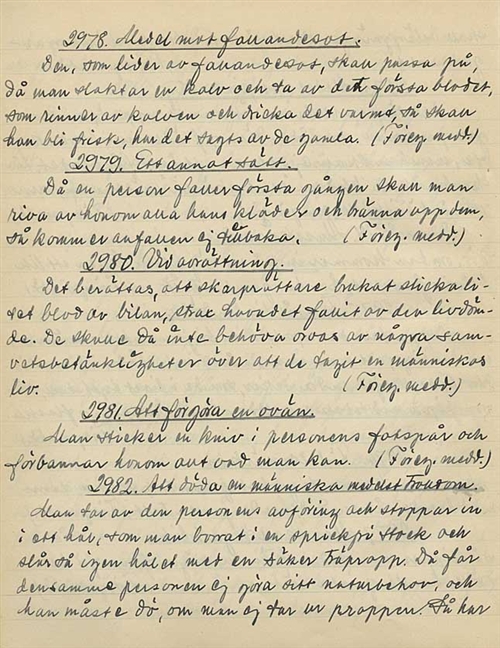 2978. Medel mot fallandesot.
Den, som lider av fallandesot, skall passa på,
då man slaktar en kalv och ta av det första blodet,
som rinner av kalven och dricka det varmt, så skall
han bli frisk, har det sagts av de gamla. (Föreg. medd.)
2979. Ett annat sätt.
Då en person faller första gången skall man
riva av honom alla hans kläder och bränna upp dem,
så kommer anfallen ej tillbaka. (Föreg. medd.)
2980. Vid avrättning.
Det berättas, att skarprättare brukat slicka li-
tet blod av bilan, strax huvudet fallit av den livdöm-
de. De skulle då inte behöva oroas av några sam-
vetsbetänkligheter över att de tagit en människas
liv. (Föreg. medd.)
2981. Att förgöra en ovän.
Man sticker en kniv i personens fotspår och
förbannar honom allt vad man kan. (Föreg. medd.)
2982. Att döda en människa medelst trolldom.
Man tar av den personens avföring och stoppar in
i ett hål, som man borrat i en stock och
slår så igen hålet med en säker träpropp. Då får
densamme personen ej göra sitt naturbehov, och
han måste dö, om man ej tar ur proppen. Så har